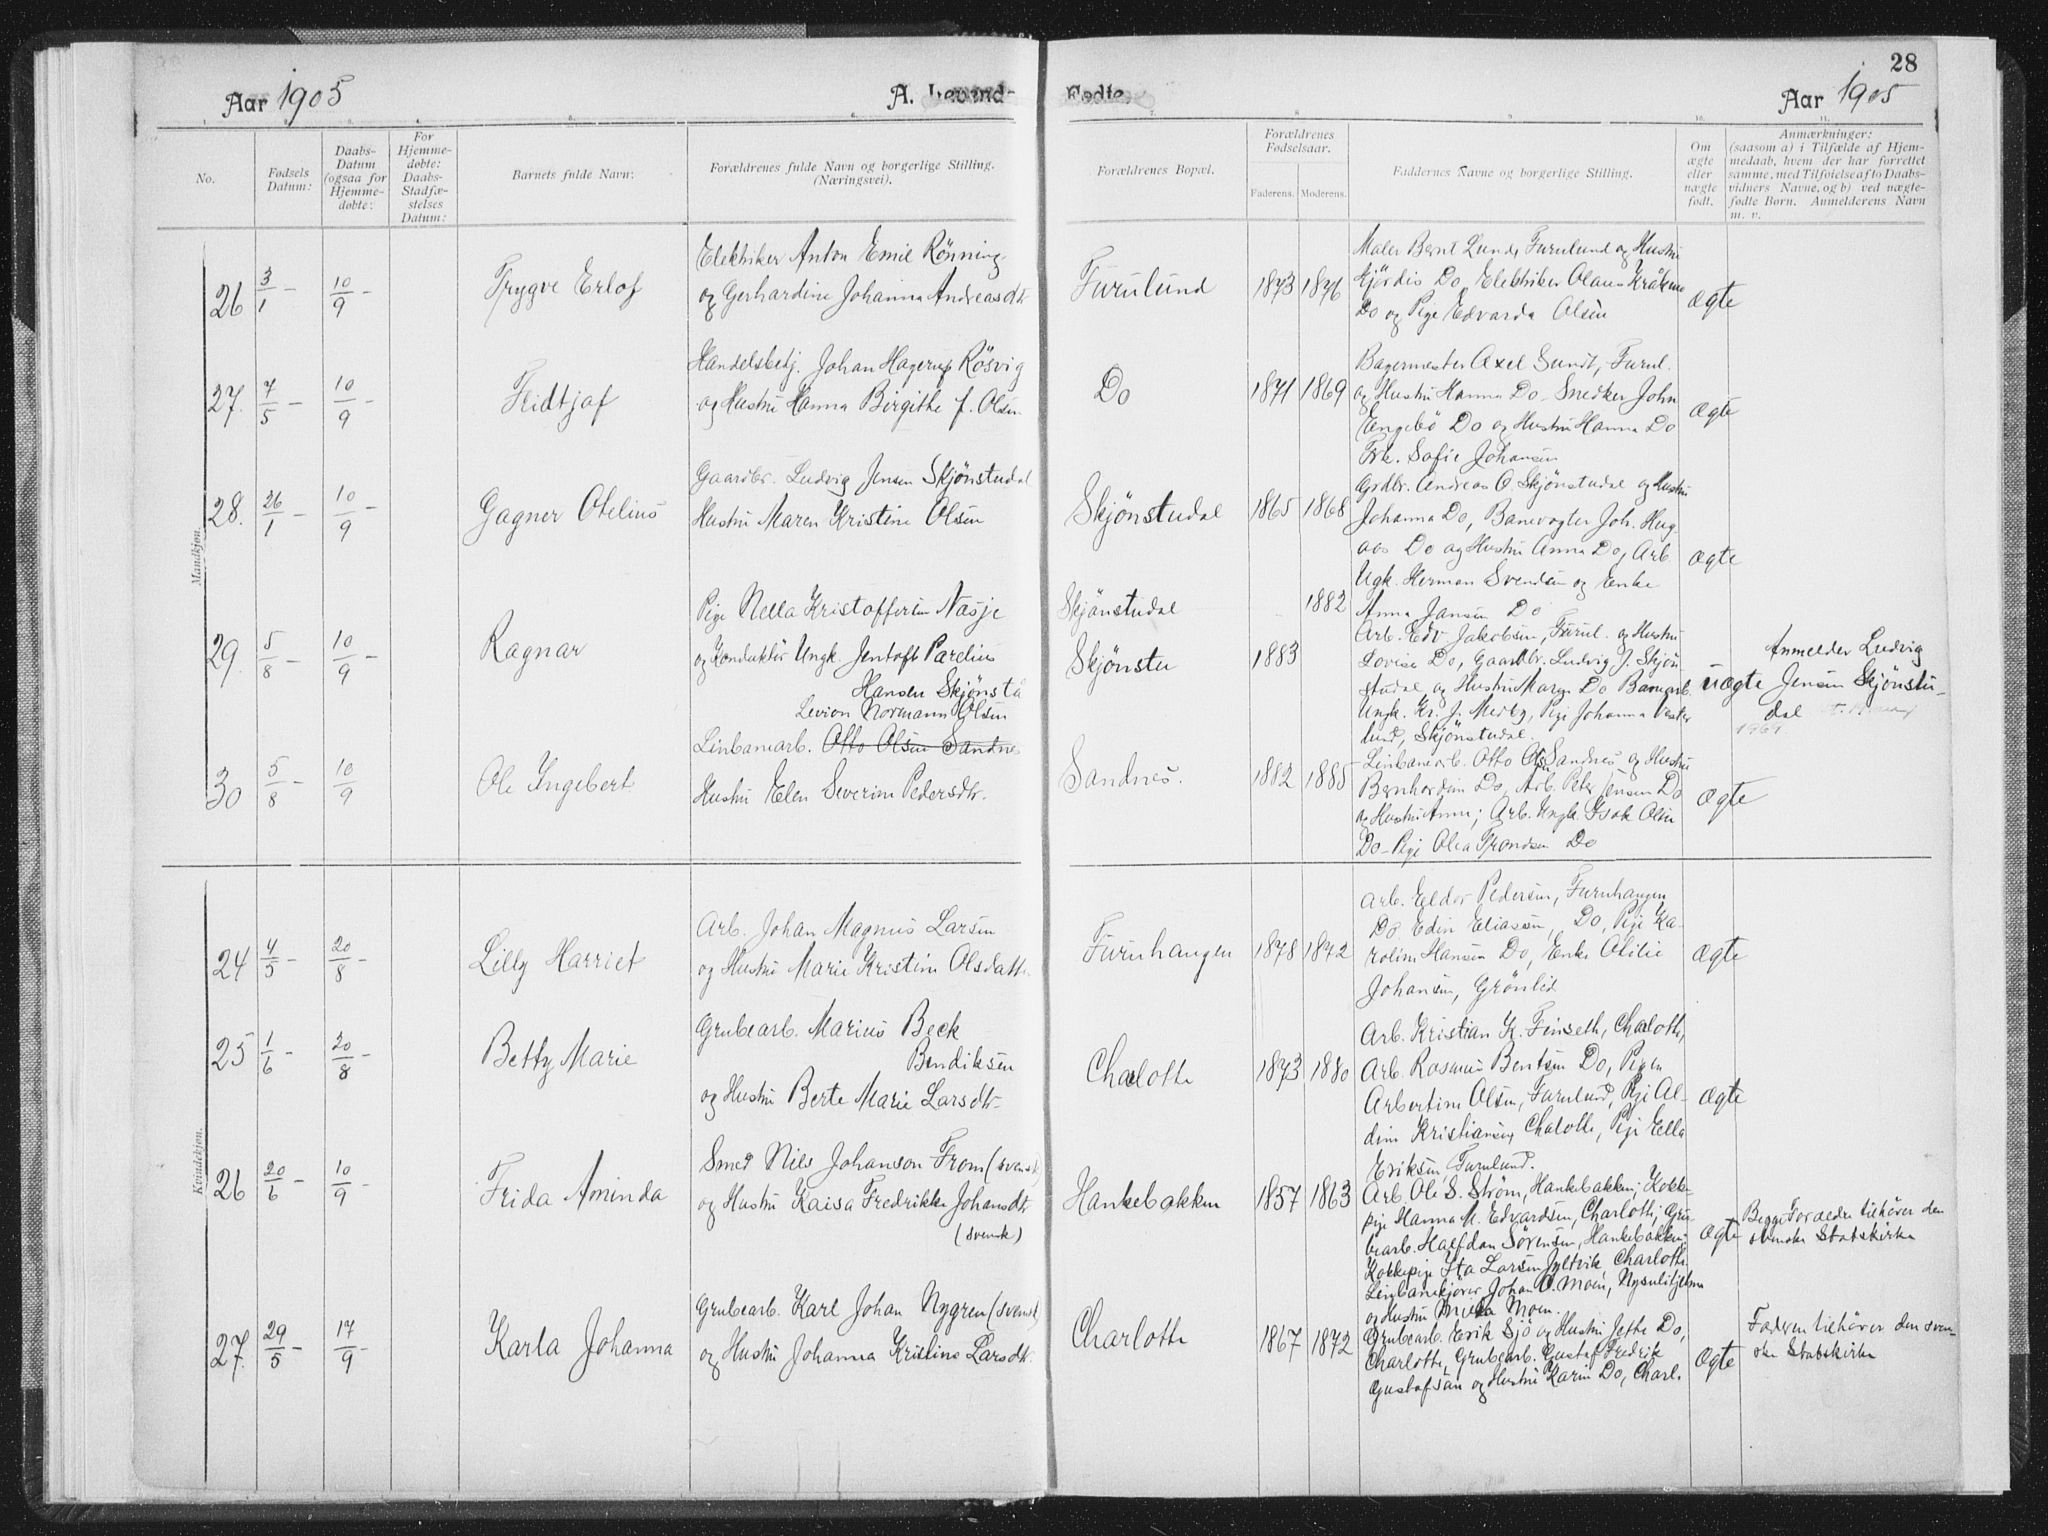 28
Aar 1905
A. Levend-
Fødte.
Aar 1905
1.
2.
3.
4.
5.
6.
7.
8
9
10.
11.
No.
Fødsels
Datum:
Daabs-
Datum
(ogsaa for
Hjemme-
døbte:
For
Hjemme-
døbte:
Daabs-
Stadfæ-
stelses
Datum:
Barnets fulde Navn:
Forældrenes fulde Navn og borgerlige Stilling.
(Næringsvei).
Forældrenes Bopæl.
Forældrenes
Fødselsaar.
Faderens.
Moderens.
Faddernes Navne og borgerlige Stilling.
Om
ægte
eller
uægte
født.
Anmærkninger:
(saasom a) i Tilfælde af Hjem-
medaab, hvem der har forrettet
samme, med Tilføielse af to Daabs-
vidners Navne, og b) ved uægte-
fødte Børn. Anmelderens Navn
m. v.
Mandkjøn.
26 3/1 - 10/9 -
Trygve Erlof
Elektriker Anton Emil Rönning
og Gerhardine Johanna Andreasdtr
Furulund
1873 1876
Maler Bernt Lund, Furulund og Hustru
Hjördis Do, Elektriker Olaus
Do og Pige Edvarda Olsen
ægte
27. 7/5 - 10/9 -
Fridtjof
Handelsbetj. Johan Hagerup Rösvig
og Hustru Hanna Birgithe f. Olsen
Do
1871 1869
Bagermester Axel Sundt, Furul.
og Hustru Hanna Do - Snedker John
Engebö Do og Hustru Hanna Do
Frk. Sofie Johansen
ægte
28. 26/1 - 10/9 -
Gagner Otelius
Gaardbr. Ludvig Jensen Skjönstudal
Hustru Maren Kristine Olsen
Skjönstudal
1865 1868
Grdbr. Andreas O. Skjönstudal og Hustru
Johanna Do, Banevogter Joh. Hug-
aas Do og Hustru Anna Do, Arb.
Ugk. Herman Svendsen og Enke
Anna Jansen Do
ægte
29. 5/8 - 10/9 -
Ragnar
Pige Nella Kristoffersen Nasje
og Konduktör Ungk. Jentoft Parelius
Hansen Skjönstå
Skjönstudal
Skjönstu
1883 1882
Arb. Edv Jakobsen, Furul. og Hustru
Lovise Do, Gaardbr. Ludvig J. Skjön-
studal og Hustru Maren Do Banearb.
Ungk. Kr. J. Merby, Pige Johanna Vester
lund, Skjönstudal.
uægte
Anmelder Ludvig
Jensen Skjönstu-
dal
30 5/8 - 10/9
Ole Ingebert
Levion Normann Olsen
Linbanearb. Otto Olsen Sandnes
Hustru Elen Severine Pedersdtr.
Sandnes.
1882 1885
Linbanearb. Otto Olsen Sandnes og Hustru
Bernhardine Do, Arb. Peter Jensen Do
og Hustru Anna; Arb. Ungk. Isak Olsen
Do - Pige Olea Trondsen Do
ægte
Kvindekjøn.
24 4/5 - 20/8 -
Lilly Harriet
Arb. Johan Magnus Larsen
og Hustru Marie Kristine Olsdatter
Furuhaugen
1878 1872
Arb. Eldor Pedersen, Furuhaugen
Do Edin Eliassen, Do, Pige Ka-
roline Hansen Do, Enke Otilie
Johansen, Grönlid
ægte
25 1/6 - 20/8 -
Betty Marie
Grubearb. Marius Beck
Bendiksen
og Hustru Berte Marie Larsdtr.
Charlotte
1873 1880
Arb. Kristian K. Finseth, Charlotte,
Arb. Rasmus Bentsen Do, Pigen
Arbertine Olsen, Furulund, Pige Al-
dine Kristiansen Chalotte, Pige Ella
Eriksen Furulund.
ægte
26 20/6 - 10/9 -
Frida Aminda
Smed Nils Johanson From (svensk)
og Hustru Kaisa Fredrikke Johansdtr
(svensk)
Hankebakken
1857 1863
Arb. Ole S. Ström, Hankebakken; Kokke-
pige Hanna M. Edvardsen, Charlotte; Gru-
bearb. Halfdan Sörensen, Hankebakken;
Kokkepige Ita Larsen Jyltvik, Charlotte.
Linbanekjörer Johan O. Moen, Nysulitjelma
og Hustru Moen.
ægte
Begge Forældre tilhörer den
svenske Statskirke
27. 29/5 - 17/9 -
Karla Johanna
Grubearb. Karl Johan Nygren (svensk)
og Hustru Johanna Kristine Larsdtr.
Charlotte
1867 1872
Grubearb. Erik Sjö og Hustru Jette Do,
Charlotte, Grubearb. Gustaf Fredrik
Gustafsan og Hustru Karin Do, Charl.
ægte
Faderen tilhörer den sven-
ske Statskirke